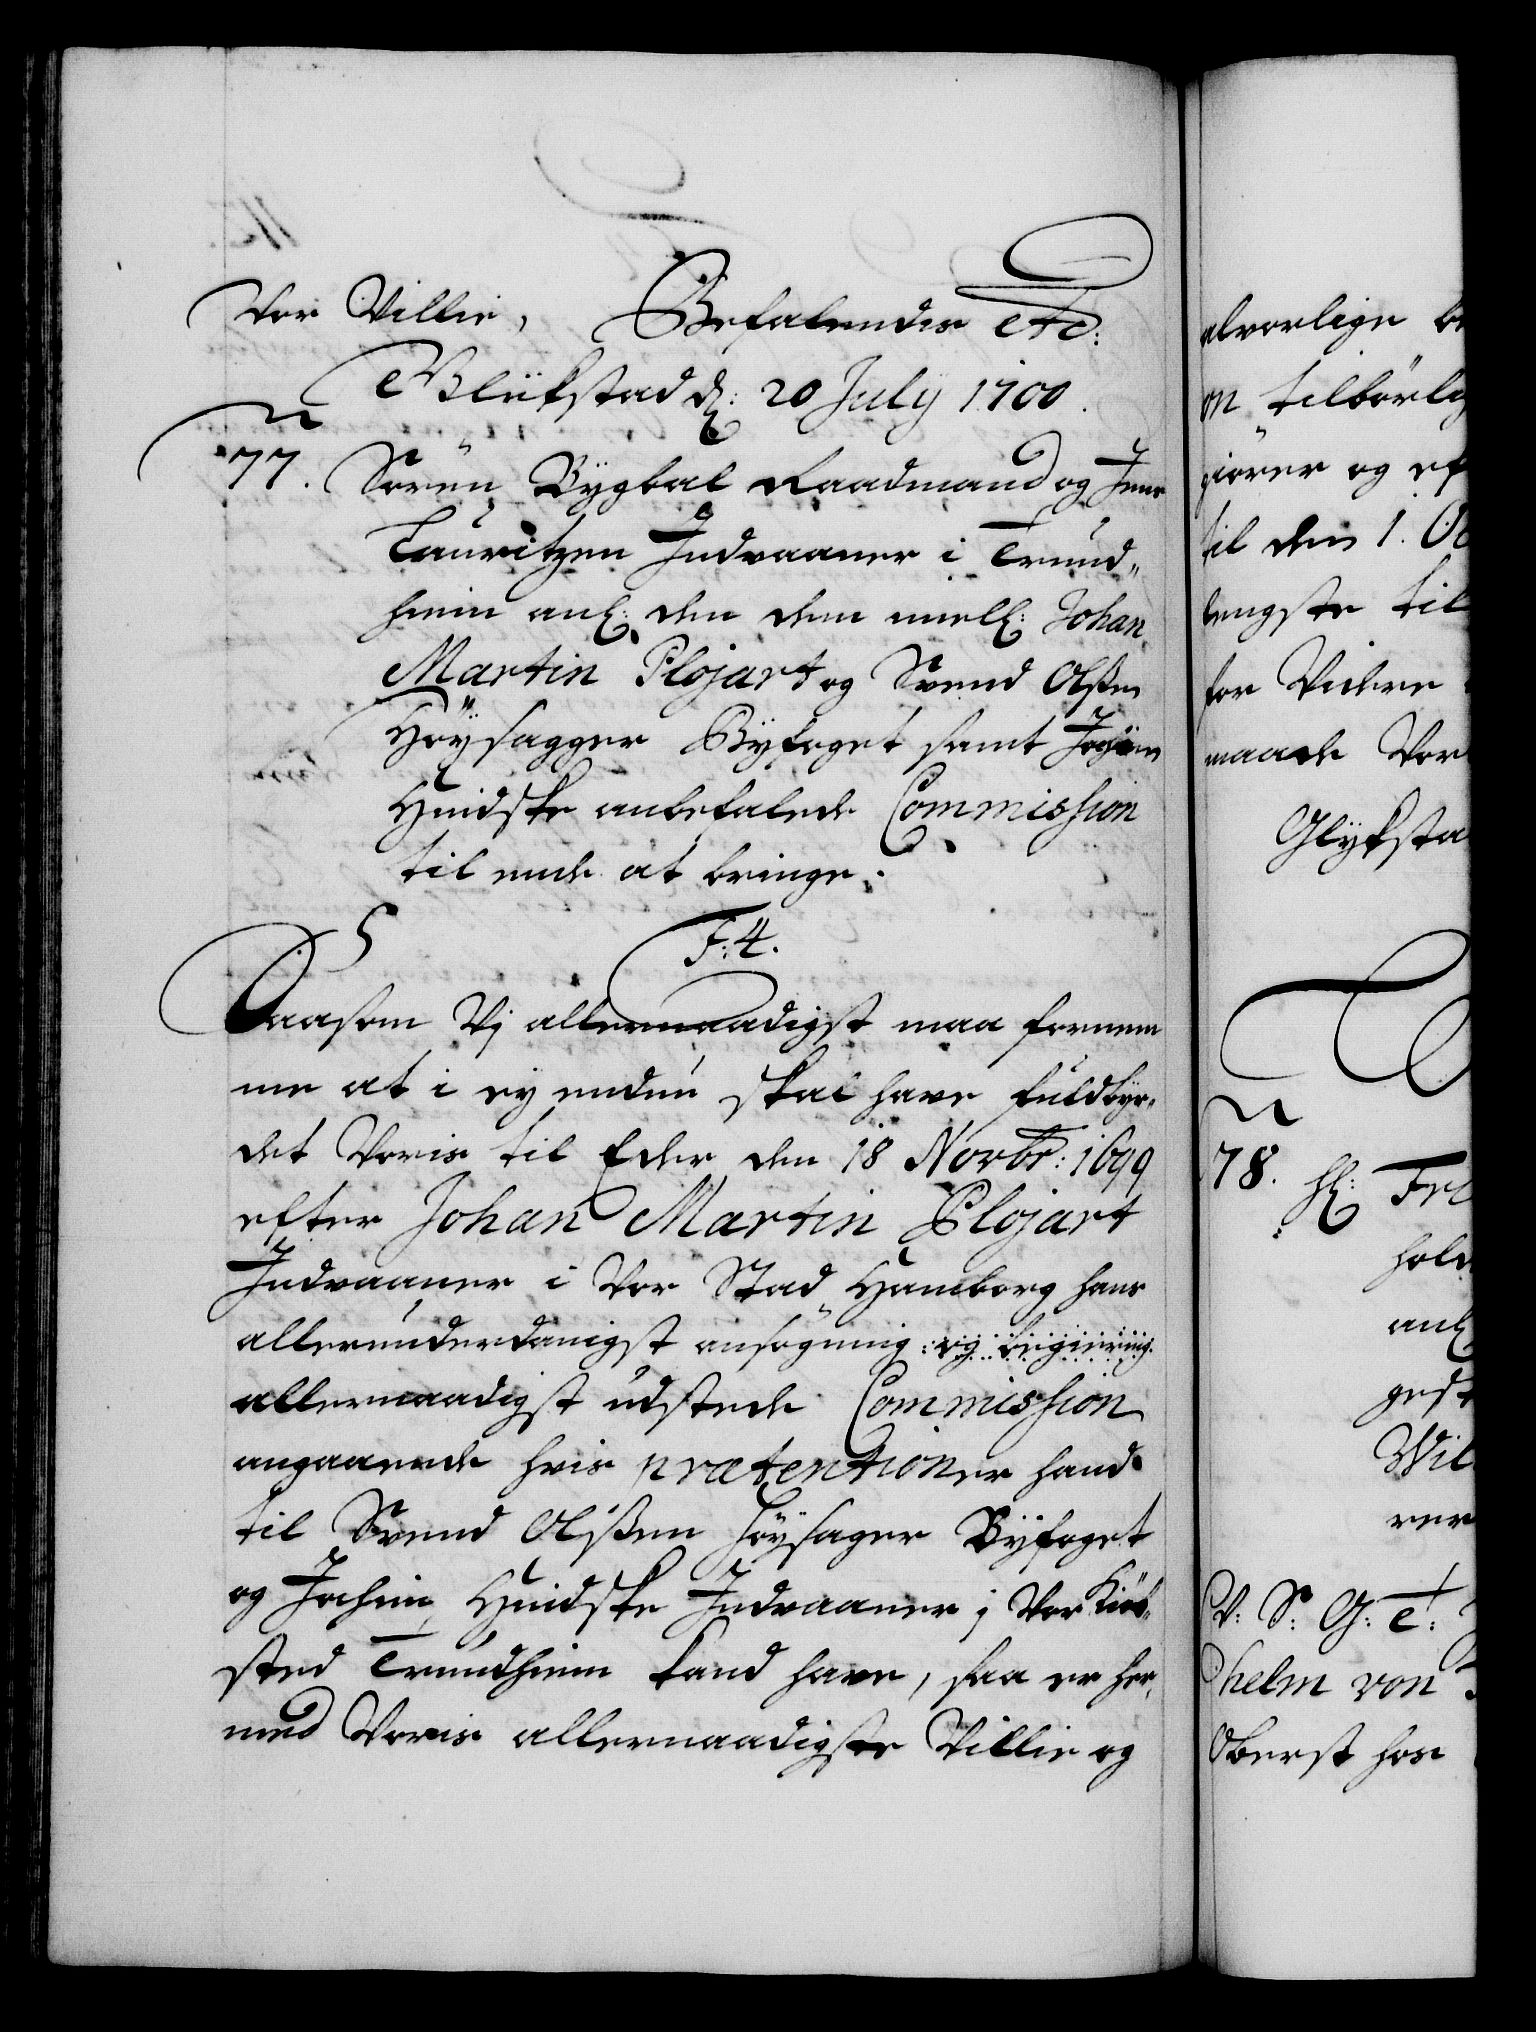 Vor Villie, Befalendis etc:
Glükstad d: 20 July 1700.
77. Sören Bygbal Raadmand og Jens
Lauritzen Indvaaner i Trund„
hiem anl: den dem mell: Johan
Martin Plojart og Svend Olßen
Höysagger Byfoget samt Jochim
Hindske anbefalede Commission
til ende at bringe.
F: 4.
Saasom Vj allernaadigst maa fornem
me at i ey endnu skal have fuldbyr„
det Voris til Eder den 18 Novbr: 1699
efter Johan Martin Plojart
Indvaaner i Vor Stad Hamborg hans
allerunderdanigst ansøgning og begiering
allernaadigst udstede Commission
angaaende hvis prætentioner hand
til Svend Olßen Höysager Byfoget
og Jochim Hindske Indvaaner j Vor Kiöb„
sted Trundhiem kand have, saa er her„
med Voris allernaadigste Villie og
alvorlige be
on tilbörlig
giörer og ef
til den 1. Oc
lengste til
for Videre
maade Vor
Glyksta
78. H: Fri
hold
anl
gest
Wil
rer
V: S: G: T:
helm von
Oberst hos